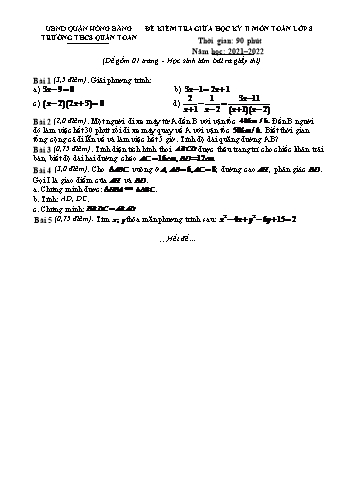 UBND QUẬN HỒNG BÀNG
TRƯỜNG THCS QUÁN TOAN
ĐỀ KIỂM TRA GIỮA HỌC KỲ II MÔN TOÁN LỚP 8
Thời gian: 90 phút
Năm học: 2021–2022
(Đề gồm 01 trang - Học sinh làm bài ra giấy thi)
Bài 1 (3,5 điểm). Giải phương trình:
a) 3x−9=0 b) 3x−1=2x+1
c) (x−2)(2x+5)=0 d) 2/(x+1) − 1/(x−2) = (3x−11)/((x+1)(x−2))
Bài 2 (2,0 điểm). Một người đi xe máy từ A đến B với vận tốc 40km/h. Đến B người
đó làm việc hết 30 phút rồi đi xe máy quay về A với vận tốc 50km/h. Biết thời gian
tổng cộng cả đi lẫn về và làm việc hết 5 giờ. Tính độ dài quãng đường AB?
Bài 3 (0,75 điểm). Tính diện tích hình thoi ABCD được thêu trang trí cho chiếc khăn trải
bàn, biết độ dài hai đường chéo AC=16cm, BD=12cm
Bài 4 (3,0 điểm). Cho ABC vuông ở A, AB=6, AC=8; đường cao AH, phân giác BD.
Gọi I là giao điểm của AH và BD.
a. Chứng minh được: HBA ABC.
b. Tính: AD, DC.
c. Chứng minh:
Bài 5 (0,75 điểm). Tìm x; y thỏa mãn phương trình sau: x²−4x+y²−6y+15=2
...Hết đề...